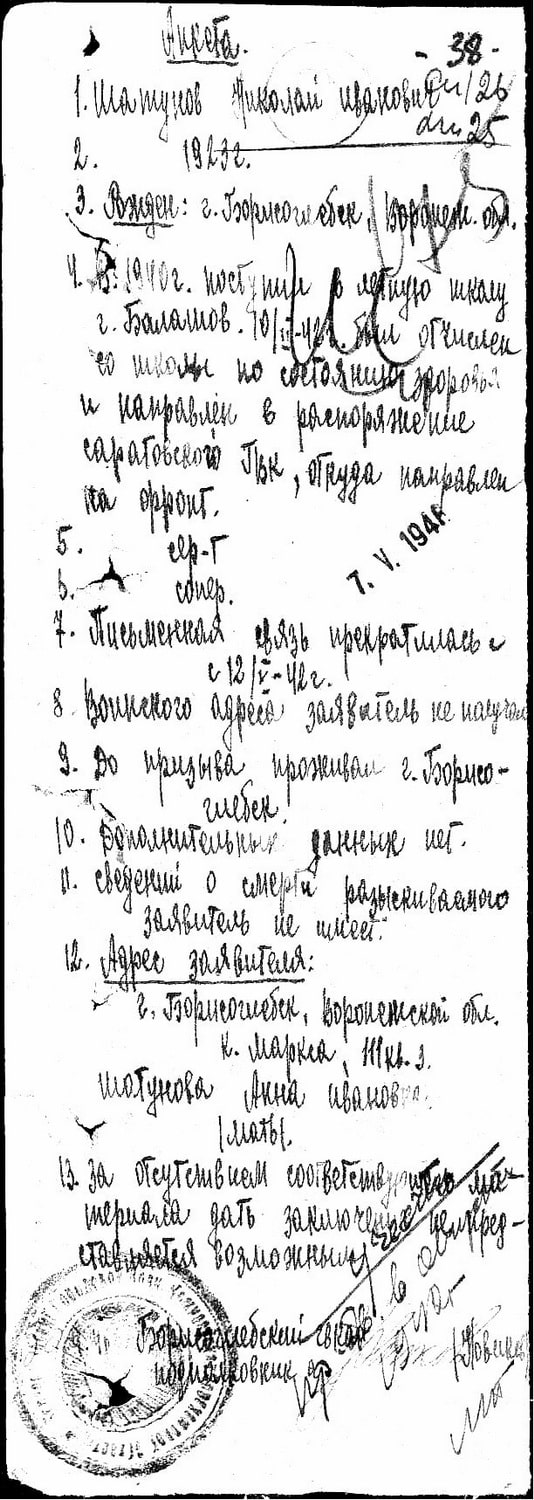 Анкета.
- 38 -
1. Шатунов Николай Иванович
2. 1923г.
3. Рожден: г. Борисоглебек, Воронеж. обл.
4. В 1940г. поступил в летную школу
г. Балашов. 10/II-42г. был отчислен
со школы по состоянию здоровья
и направлен в распоряжение
саратовского ГВК, откуда направлен
на фронт.
7. V. 194
5. сер-т
6. сапер.
7. Письменная связь прекратилась с
с 12/V-42г.
8. Воинского адреса заявитель не получал
9. До призыва проживал г. Борисо-
глебек.
10. Дополнительных данных нет.
11. Сведений о смерти разыскиваемого
заявитель не имеет.
12. Адрес заявителя:
г. Борисоглебек, Воронежской обл.
К. Маркса, 111 кв. 3.
Шатунова Анна Ивановна.
/мать/.
13. За отсутствием соответствующего ма-
териала дать заключение непред-
ставляется возможным
Борисоглебский
подполковник